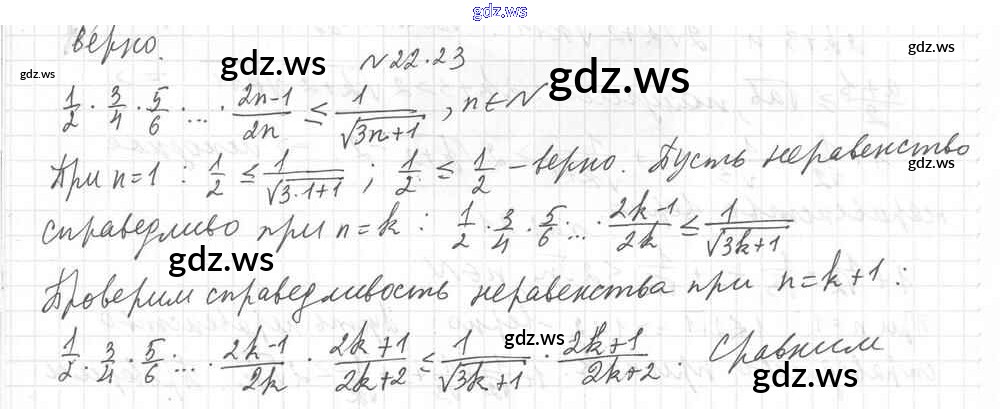 gdz.ws
верно.
gdz.ws gdz.ws gdz.ws
N 22.23 gdz.ws
1/2 · 3/4 · 5/6 · ... · (2n-1)/2n ≤ 1/√(3n+1) , n ∈ N
При n=1 : 1/2 ≤ 1/√(3·1+1) ; 1/2 ≤ 1/2 – верно. Пусть неравенство
gdz.ws
справедливо при n=k : 1/2 · 3/4 · 5/6 ... · (2k-1)/2k ≤ 1/√(3k+1)
gdz.ws
Проверим справедливость неравенства при n=k+1 :
gdz.ws
1/2 · 3/4 · 5/6 · ... · (2k-1)/2k · (2k+1)/(2k+2) ≤ 1/√(3k+1) · (2k+1)/(2k+2) . Сравним
gdz.ws